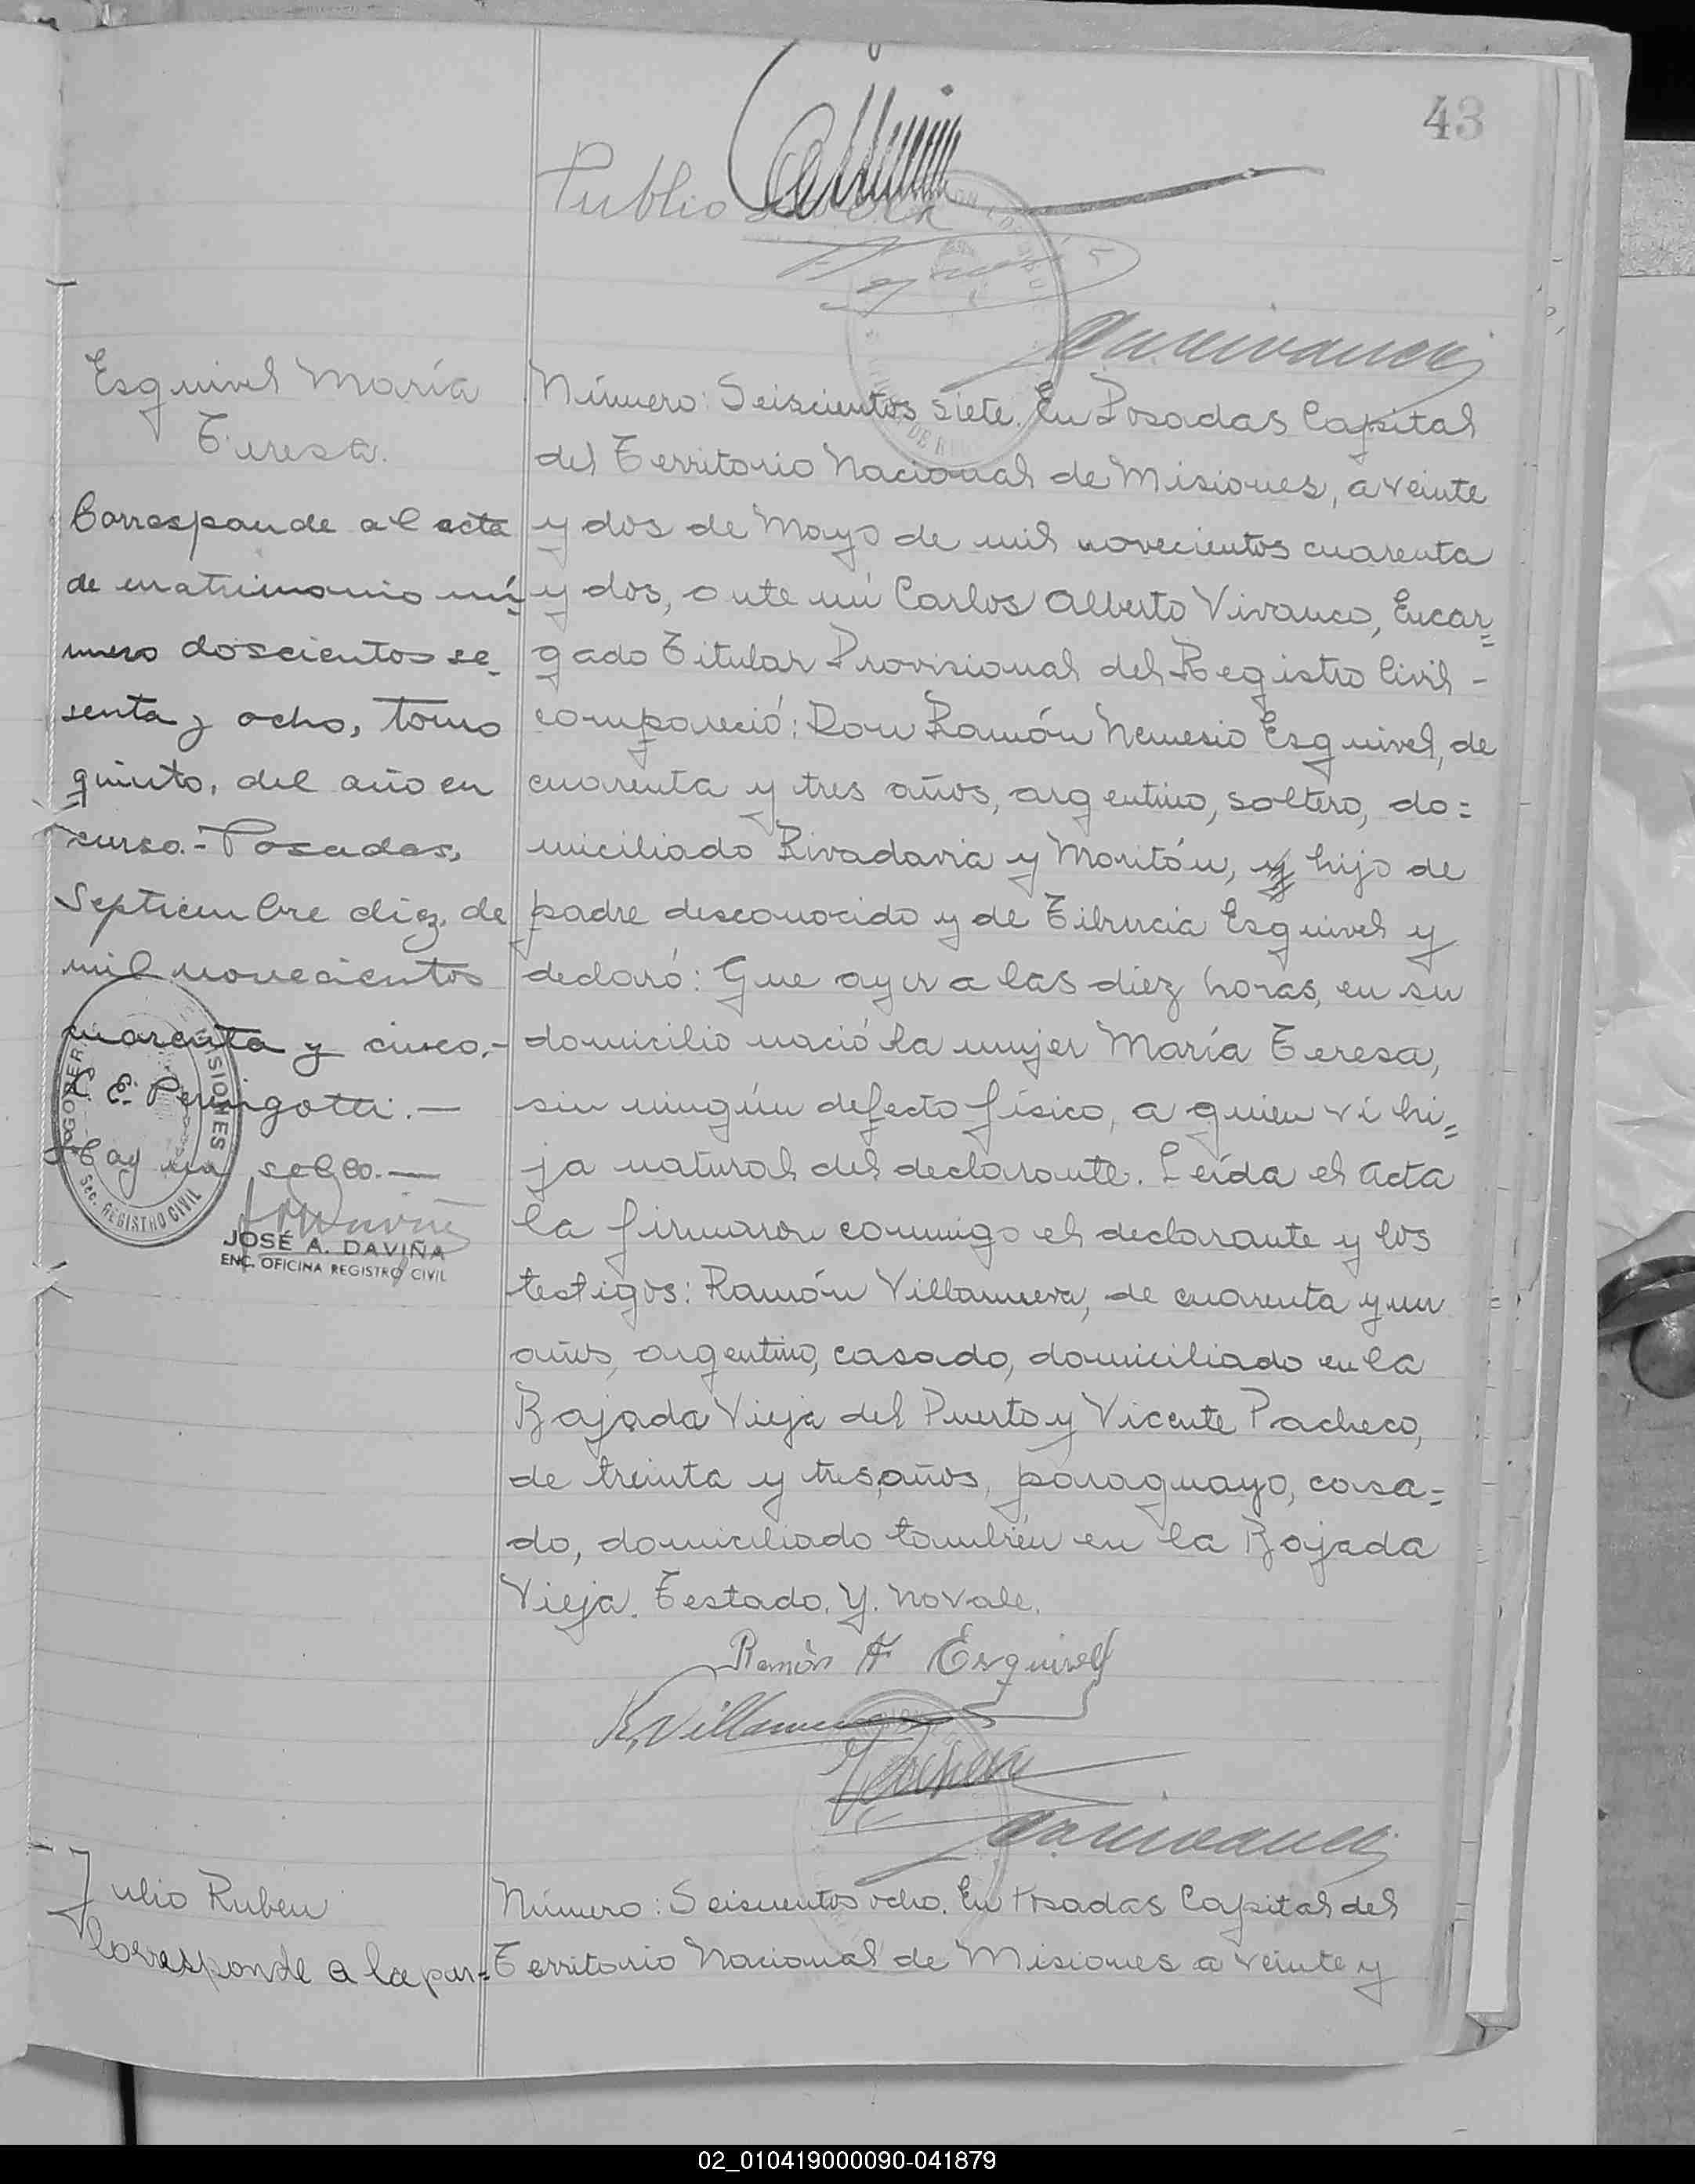 43
Publio
Esquivel María
Teresa.
Corresponde al acta
de matrimonio nú-
mero doscientos se-
senta y ocho, tomo
quinto, del año en
curso.- Posadas,
Septiembre diez de
mil novecientos
cuarenta y cinco.-
C. E. Peringotti.-
Hay un sello.-
GOBER MISIONES
Sec. REGISTRO CIVIL
JOSÉ A. DAVIÑA
ENC. OFICINA REGISTRO CIVIL
Número: Seiscientos siete. En Posadas Capital
del Territorio Nacional de Misiones, a veinte
y dos de Mayo de mil novecientos cuarenta
y dos, ante mí Carlos Alberto Vivanco, Encar=
gado Titular Provisional del Registro Civil -
compareció: Don Ramón Nemesio Esquivel, de
cuarenta y tres años, argentino, soltero, do=
miciliado Rivadavia y Moritán, y hijo de
padre desconocido y de Tiburcia Esquivel y
declaró: Que ayer a las diez horas, en su
domicilio nació la mujer María Teresa,
sin ningún defecto físico, a quien vi hi=
ja natural del declarante. Leída el acta
la firmaron conmigo el declarante y los
testigos: Ramón Villanueva, de cuarenta y un
años, argentino, casado, domiciliado en la
Bajada Vieja del Puerto y Vicente Pacheco,
de treinta y tres años, paraguayo, casa=
do, domiciliado también en la Bajada
Vieja. Testado. Y. No vale.
Ramón N Esquivel
R. Villanueva
Julio Ruben
Corresponde a la par=
Número: Seiscientos ocho. En Posadas Capital del
Territorio Nacional de Misiones a veinte y
02_010419000090-041879